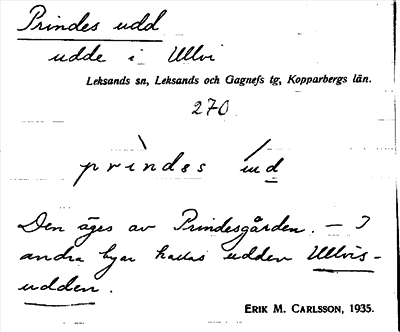 Prindes udd
udde i Ullvi
Leksands sn, Leksands och Gagnefs tg, Kopparbergs län.
270.
prìndes ú̄d
Den äges av Prindesgården. — I
andra byar kallas udden Ullvis-
udden.
ERIK M. CARLSSON, 1935.